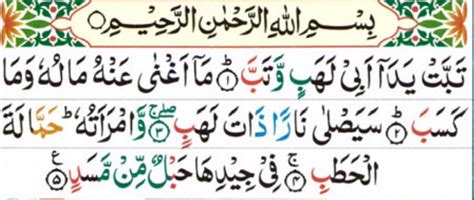 بِسْمِ اللهِ الرَّحْمٰنِ الرَّحِيْمِ ○
تَبَّتْ يَدَاۤ اَبِىْ لَهَبٍ وَّتَبَّ ؕ﴿۱﴾ مَاۤ اَغْنٰى عَنْهُ مَالُهٗ وَمَا
كَسَبَ ؕ﴿۲﴾ سَيَصْلٰى نَارًا ذَاتَ لَهَبٍ ۖۚ﴿۳﴾ وَّامْرَاَتُهٗ ؕ حَمَّالَةَ
الْحَطَبِ ۚ﴿۴﴾ فِىْ جِيْدِهَا حَبْلٌ مِّنْ مَّسَدٍ ﴿۵﴾ ع